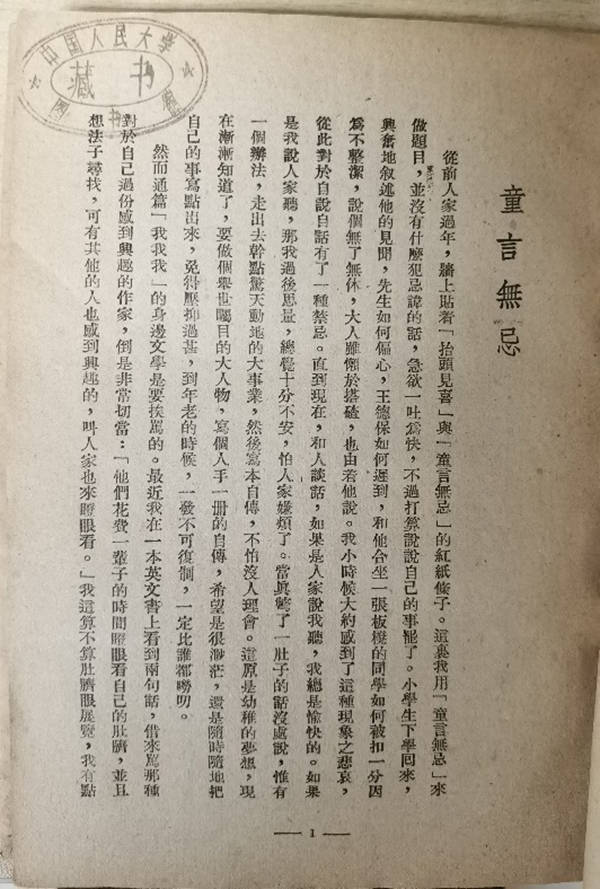 中国人民大学
藏书
图书馆
童言無忌
從前人家過年，牆上貼着「抬頭見喜」與「童言無忌」的紅紙條子。這裏我用「童言無忌」來
做題目，並沒有什麼犯忌諱的話，急欲一吐爲快，不過打算說說自己的事罷了。小學生下學回來，
興奮地叙述他的見聞，先生如何偏心，王德保如何遲到，和他合坐一張板櫈的同學如何被扣一分因
爲不整潔，說個無了無休，大人雖懶於搭碴，也由着他說。我小時候大約感到了這種現象之悲哀，
從此對於自說自話有了一種禁忌。直到現在，和人談話，如果是人家說我聽，我總是愉快的。如果
是我說人家聽，那我過後思量，總覺十分不安，怕人家嫌煩了。當眞憋了一肚子的話沒處說，惟有
一個辦法，走出去幹點驚天動地的大事業，然後寫本自傳，不怕沒人理會。這原是幼稚的夢想，現
在漸漸知道了，要做個舉世矚目的大人物，寫個人手一册的自傳，希望是很渺茫，還是隨時隨地把
自己的事寫點出來，免得壓抑過甚，到年老的時候，一發不可復制，一定比誰都嘮叨。
然而通篇「我我我」的身邊文學是要挨罵的。最近我在一本英文書上看到兩句話，借來罵那種
對於自己過份感到興趣的作家，倒是非常切當：「他們花費一輩子的時間瞪眼看自己的肚臍，並且
想法子尋找，可有其他的人也感到興趣的，叫人家也來瞪眼看。」我這算不算肚臍眼展覽，我有點
— 1 —